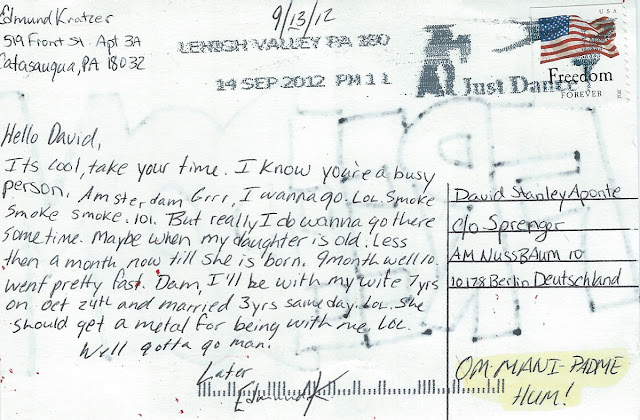 Edmund Kratzer
519 Front St. Apt 3A
Catasauqua, PA 18032
9/13/12
LEHIGH VALLEY PA 180
14 SEP 2012 PM 1 L
Just Dance
USA
Freedom
FOREVER
Hello David,
Its cool, take your time. I know you're a busy
person. Amsterdam Grrr, I wanna go. LOL. Smoke
smoke smoke. lol. But really I do wanna go there
sometime. Maybe when my daughter is old. Less
then a month now till she is born. 9month well lo.
went pretty fast. Dam, I'll be with my wife 7yrs
on Oct 24th and married 3yrs same day. LoL. She
should get a metal for being with me. LOL.
Well gotta go man.
Later
Edmund K
David Stanley Aponte
c/o Sprenger
AM NUSSBAUM 10
10178 Berlin Deutschland
OM-MANI-PADME
HUM!